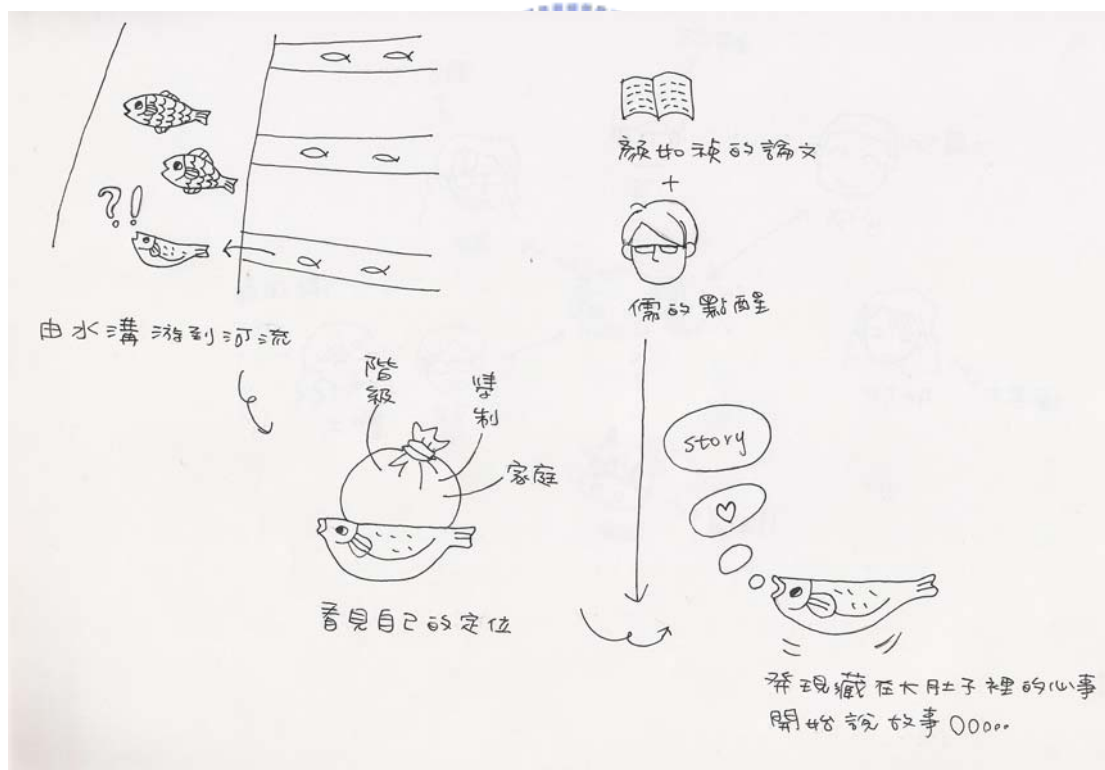 ?!
由水溝游到河流
階級
學制
家庭
看見自己的定位
顏如禎的論文
+
儒的點醒
story
發現藏在大肚子裡的心事
開始說故事OOooo